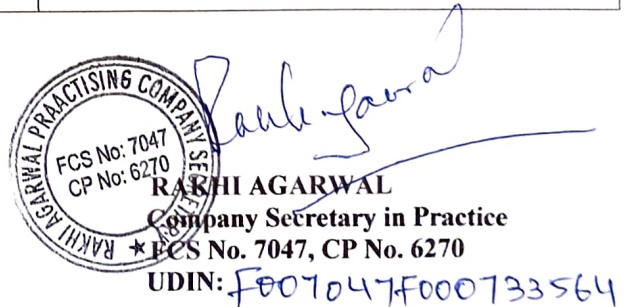 RAKHI AGARWAL PRAACTISING COMPANY SECRETARY
FCS No: 7047
CP No: 6270
RAKHI AGARWAL
Company Secretary in Practice
FCS No. 7047, CP No. 6270
UDIN: F007047F000733564